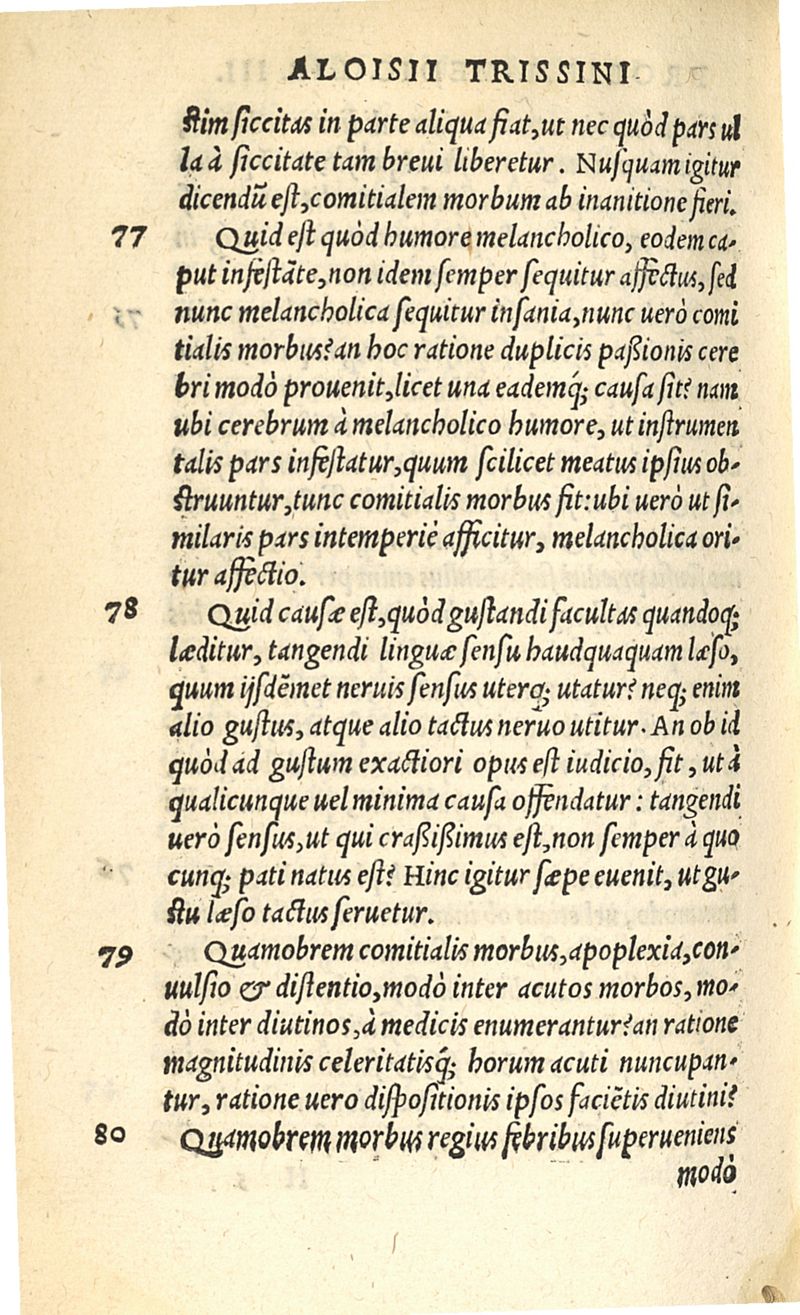 ALOISII TRISSINI
stim siccitas in parte aliqua fiat, ut nec quòd pars ul
la à siccitate tam breui liberetur. Nusquam igitur
dicendū est, comitialem morbum ab inanitione fieri.
77 Quid est quòd humore melancholico, eodem ca-
put infestāte, non idem semper sequitur affectus, sed
nunc melancholica sequitur insania, nunc uerò comi
tialis morbus? an hoc ratione duplicis paßionis cere
bri modò prouenit, licet una eademq́; causa sit? nam
ubi cerebrum à melancholico humore, ut instrumen
talis pars infestatur, quum scilicet meatus ipsius ob-
struuntur, tunc comitialis morbus fit: ubi uerò ut si-
milaris pars intemperiè afficitur, melancholica ori-
tur affectio.
78 Quid causæ est, quòd gustandi facultas quandoq;
læditur, tangendi linguæ sensu haudquaquam læso,
quum ijsdēmet neruis sensus uterq; utatur? neq; enim
alio gustus, atque alio tactus neruo utitur. An ob id
quòd ad gustum exactiori opus est iudicio, fit, ut à
qualicunque uel minima causa offendatur: tangendi
uerò sensus, ut qui craßißimus est, non semper à quo
cunq; pati natus est? Hinc igitur sæpe euenit, ut gu-
stu læso tactus seruetur.
79 Quamobrem comitialis morbus, apoplexia, con-
uulsio & distentio, modò inter acutos morbos, mo-
dò inter diutinos, à medicis enumerantur? an ratione
magnitudinis celeritatisq́; horum acuti nuncupan-
tur, ratione uero dispositionis ipsos faciētis diutini?
80 Quamobrem morbus regius febribus superueniens
modò